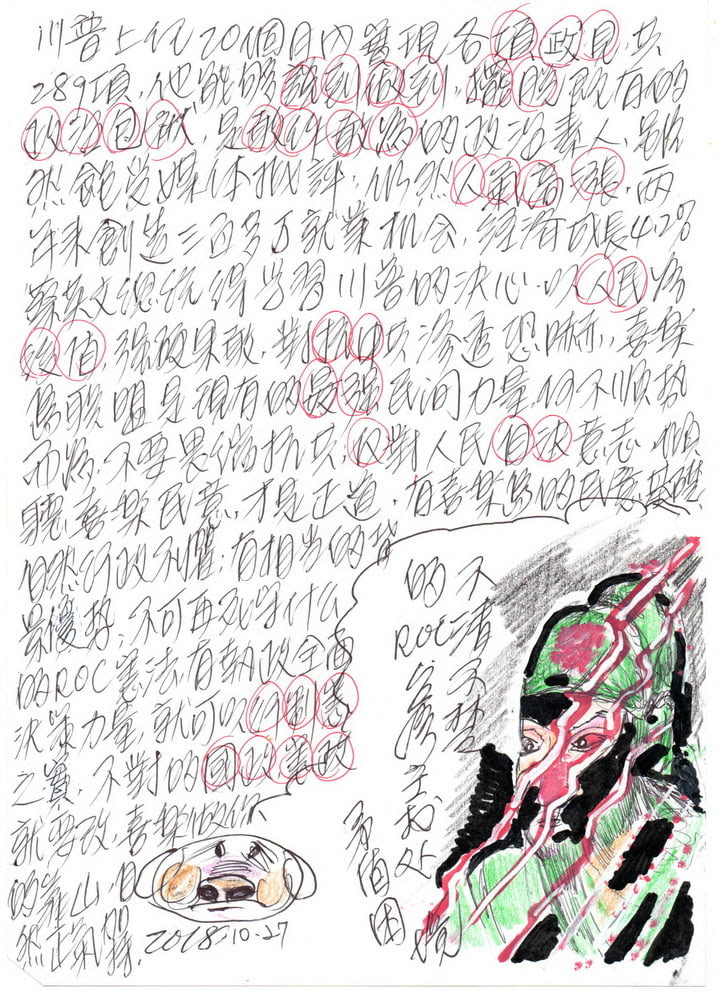 川普上任20個月內實現各項政見,共
289項,他能够說到做到,擺脫既有的
政治包袱,是敢作敢為的政治素人,雖
然飽受媒体批評,仍然人氣高漲,兩
年來創造三百多万就業机会,經濟成長4.2%
蔡英文總統得学習川普的決心.以人民為
後盾,強硬果敢,對抗中共滲透恐嚇,喜樂
島联盟是現有的最強民间力量,何不順势
而為,不要畏缩抗共,反對人民自决意志,傾
聽喜樂民意,才是正道,有喜樂島的民意基礎,
自然行政不懼,有相当的
優势,不可再死守什么
的ROC憲法,有朝政全面
決策力量,就可以行制憲
之實,不對的國政黨政
就要改,喜樂做你
的靠山,自
然正氣
2018-10-27
不清不楚
的ROC台灣主权
矛盾困境